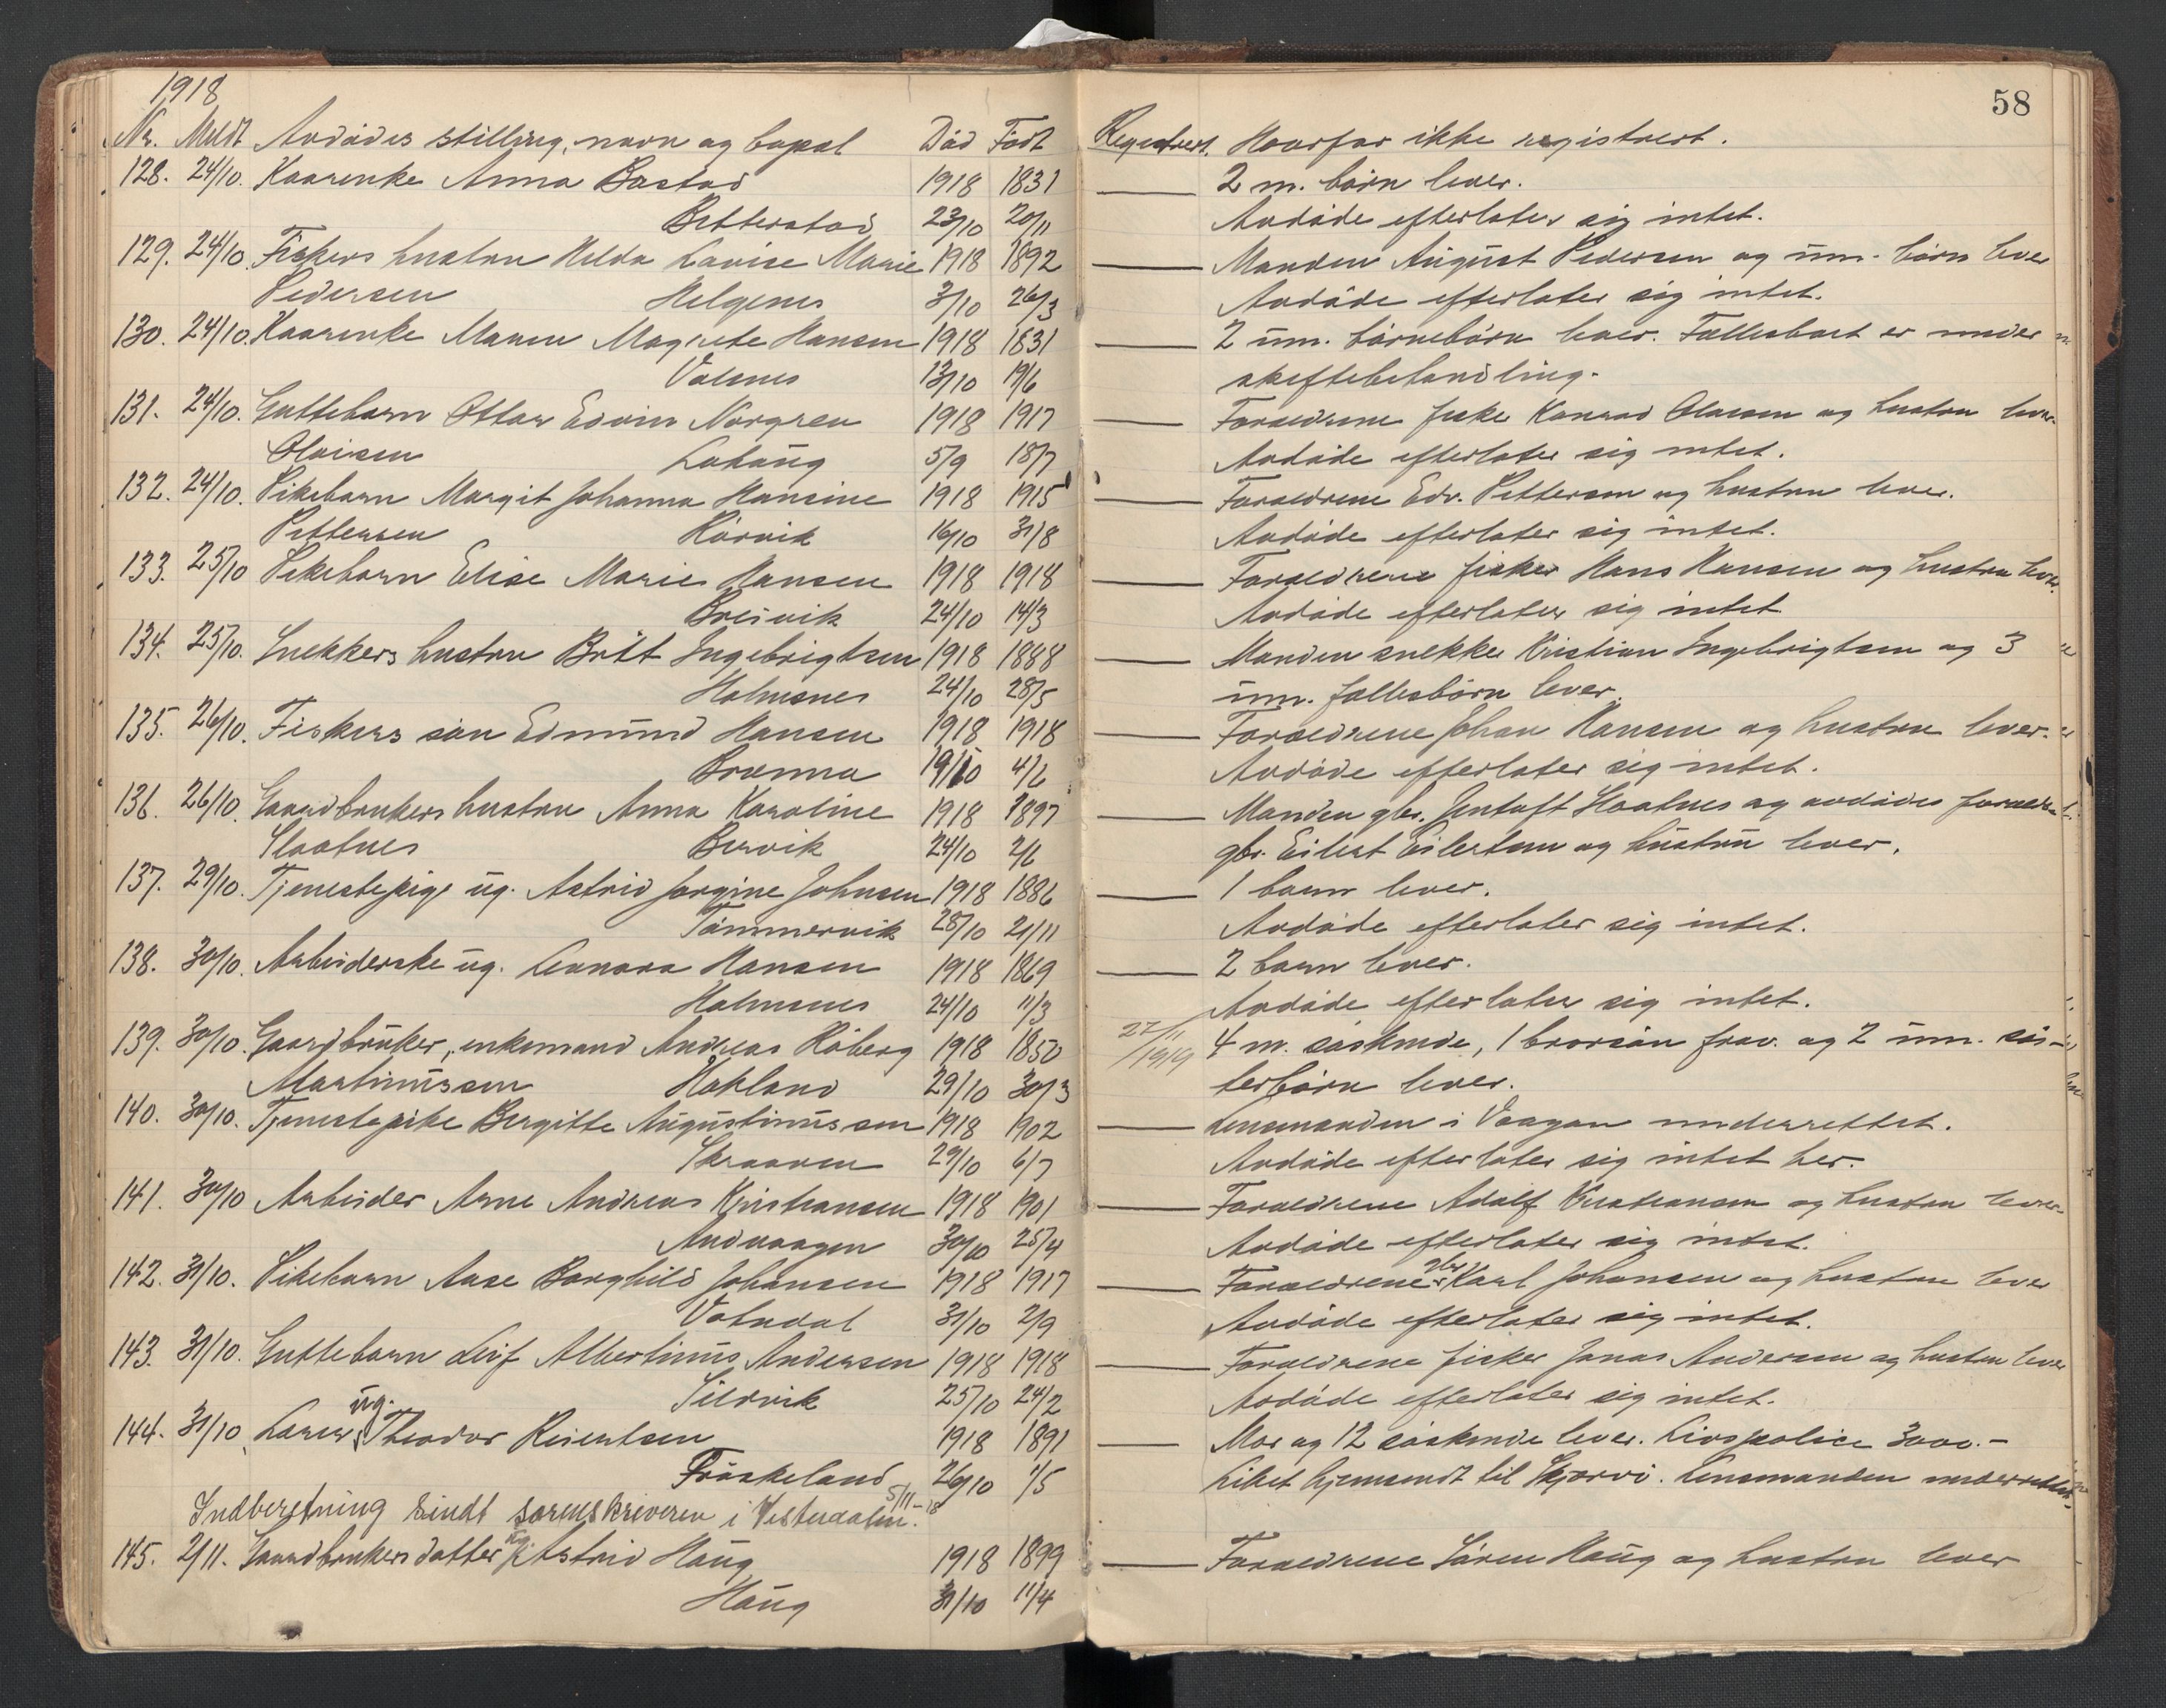 1918
58
Nr. Meldt Avdødes stilling, navn og bopæl Død Født Registrert. Hvorfor ikke registrert.
128. 24/10. Kaarenke Anna Bostad 1918 1831 — 2 m. børn lever.
Bitterstad 23/10 20/11 Avdøde efterlater sig intet.
129. 24/10. Fiskers hustru Helda Lavise Marie 1918 1892 — Manden August Pedersen og um. børn lever
Pedersen Melgenes 3/10 26/3 Avdøde efterlater sig intet.
130. 24/10. Kaarenke Maren Magrete Hansen 1918 1831 — 2 um. børnebørn lever. Fællesboet er under
Valsnes 13/10 19/6 skiftebehandling.
131. 24/10. Guttebarn Ottar Edvin Norgren 1918 1917 — Forældrene fisker Konrad Olaisen og hustru lever.
Olaisen Lahaug 5/9 18/7 Avdøde efterlater sig intet.
132. 24/10. Pikebarn Margit Johanna Hansine 1918 1915 — Forældrene Edv. Pettersen og hustru lever.
Pettersen Rørvik 16/10 31/8 Avdøde efterlater sig intet.
133. 25/10 Pikebarn Elise Marie Hansen 1918 1918 — Forældrene fisker Hans Hansen og hustru lever.
Breivik 24/10 14/3 Avdøde efterlater sig intet
134. 25/10. Snekkers hustru Britt Ingebrigtsen 1918 1888 — Manden snekker Kristian Ingebrigtsen og 3
Holmsnes 24/10 28/5 um. fællesbørn lever.
135. 26/10. Fiskers søn Edmund Hansen 1918 1918 — Forældrene Johan Hansen og hustru lever.
Brønna 19/10 4/6 Avdøde efterlater sig intet.
136. 26/10. Gaardbrukers hustru Anna Karoline 1918 1897 — Manden gbr. Jentoft Slaatnes og avdødes forældre
Slaatnes Bervik 24/10 2/6 gbr. Eilert Eilertsen og hustru lever.
137. 29/10. Tjenestepige ug. Astrid Jørgine Johnsen 1918 1886 — 1 barn lever.
Tømmervik 28/10 21/11 Avdøde efterlater sig intet.
138. 30/10. Arbeiderske ug. Leonora Hansen 1918 1869 — 2 barn lever.
Holmsnes 24/10 11/3 Avdøde efterlater sig intet.
139. 30/10. Gaardbruker, enkemand Andreas Røberg 1918 1850 27/11 1919 4 m. søskende, 1 brorsøn frav. og 2 um. søs-
Martinussen Hokland 29/10 30/3 terbørn lever.
140. 30/10. Tjenestepike Bergitte Augustinussen 1918 1902 — Lensmanden i Vaagan underrettet.
Skraaven 29/10 6/7 Avdøde efterlater sig intet her.
141. 30/10 Arbeider Arne Andreas Kristiansen 1918 1901 — Forældrene Adolf Kristiansen og hustru lever.
Andvaagen 30/10 25/4 Avdøde efterlater sig intet.
142. 31/10. Pikebarn Aase Borghild Johansen 1918 1917 — Forældrene gbr. Karl Johansen og hustru lever
Vatndal 31/10 2/9 Avdøde efterlater sig intet.
143. 31/10. Guttebarn Leif Albertinus Andersen 1918 1918 — Forældrene fisker Jonas Andersen og hustru lever
Sildvik 25/10 24/2 Avdøde efterlater sig intet.
144. 31/10 Lærer ug. Theodor Reiertsen 1918 1891 — Mor og 12 søskende lever. Livspolice 3000.-
Frøskeland 26/10 1/5 Liket hjemsendt til Skjærvø. Lensmanden underrettet.
Indberetning sendt sorenskriveren i Vesteraalen. 5/11-18
145. 2/11. Gaardbrukers datter ug. Astrid Haug 1918 1899 — Forældrene Søren Haug og hustru lever
Haug 31/10 11/4